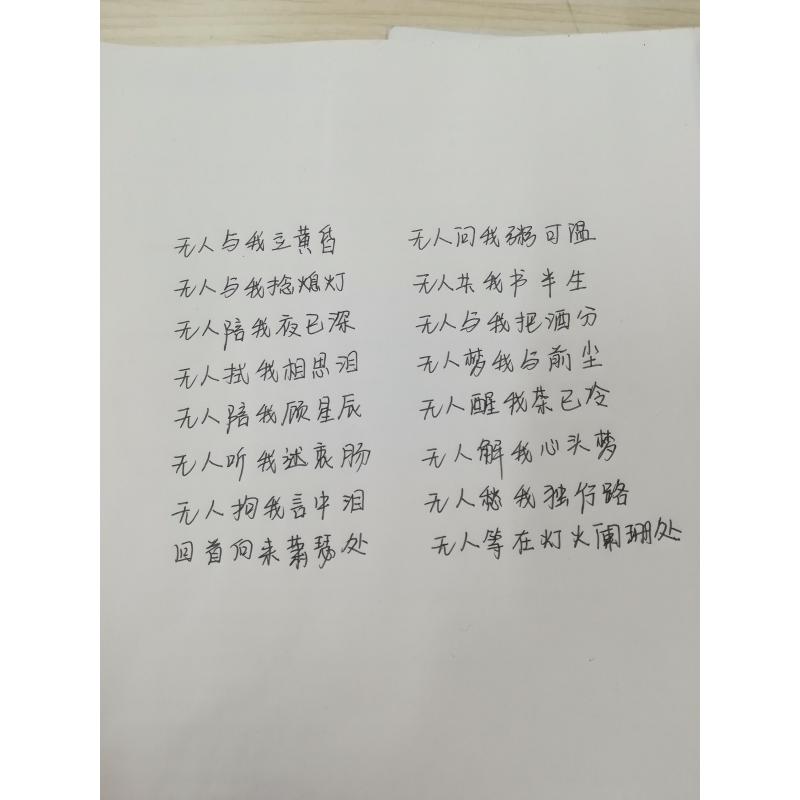 无人与我立黄昏 无人问我粥可温
无人与我捻熄灯 无人共我书半生
无人陪我夜已深 无人与我把酒分
无人拭我相思泪 无人梦我与前尘
无人陪我顾星辰 无人醒我茶已冷
无人听我述衷肠 无人解我心头梦
无人拘我言中泪 无人愁我独行路
回首向来萧瑟处 无人等在灯火阑珊处